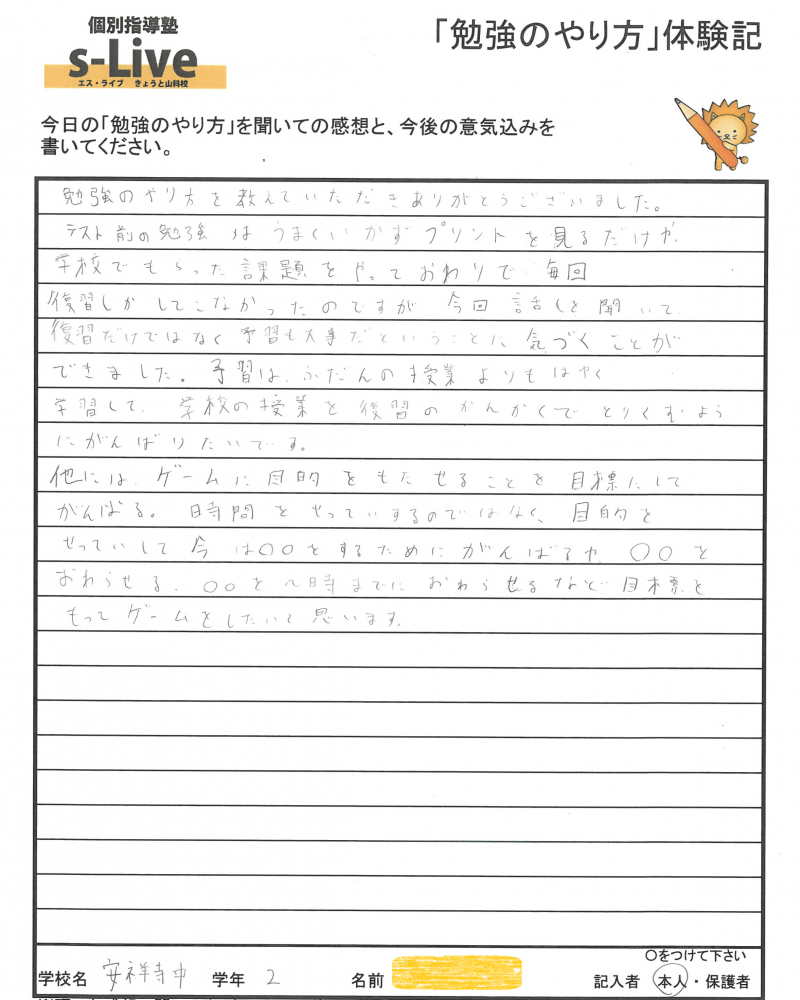 個別指導塾
s-Live
エス・ライブ きょうと山科校
「勉強のやり方」体験記
今日の「勉強のやり方」を聞いての感想と、今後の意気込みを
書いてください。
勉強のやり方を教えていただきありがとうございました。
テスト前の勉強はうまくいかずプリントを見るだけや、
学校でもらった課題をやっておわりで毎回
復習しかしてこなかったのですが今回話しを聞いて、
復習だけではなく予習も大事だということに気づくことが
できました。予習は、ふだんの授業よりもはやく
学習して、学校の授業を復習のかんかくでとりくむよう
にがんばりたいです。
他には、ゲームに目的をもたせることを目標にして
がんばる。時間をせっていするのではなく、目的を
せっていして今は〇〇をするためにがんばるや、〇〇を
おわらせる、〇〇を〜時までにおわらせるなど目標を
もってゲームをしたいと思います。
〇をつけて下さい
学校名 安祥寺中 学年 2 名前 記入者 本人・保護者